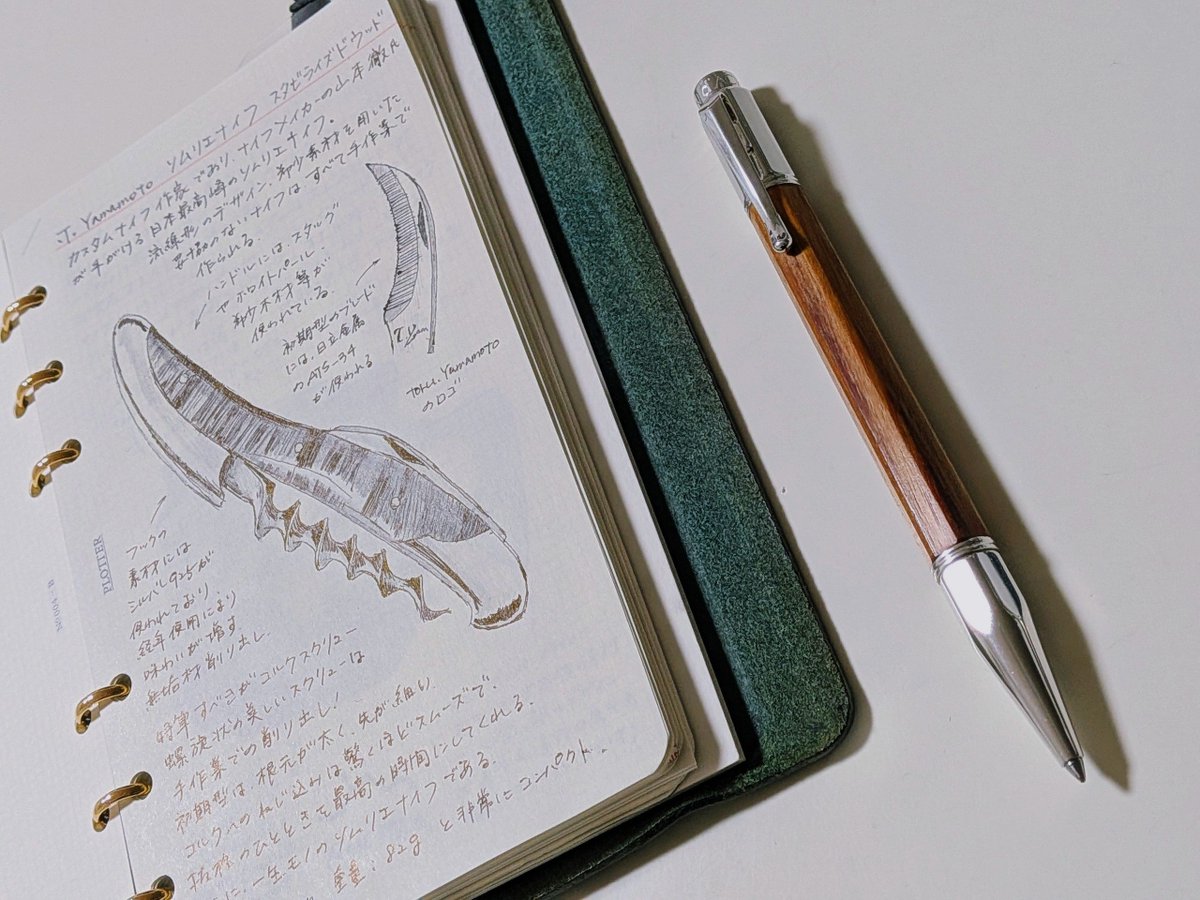 T. Yamamoto ソムリエナイフ スタビライズドウッド
カスタムナイフ作家であり、ナイフメイカーの山本徹氏
が手がける日本最高峰のソムリエナイフ。
流線形のデザイン、希少素材を用いた
妥協のないナイフは、すべて手作業で
作られる。
ハンドルにはスタッグ
やホワイトパール、
希少木材等が
使われている。
初期型のブレード
には、日立金属
のATS-34
が使われる
Tohru.Yamamoto
のロゴ
フックの
素材には
シルバー925が
使われており
経年使用により
味わいが増す。
無垢材削り出し。
特筆すべきがコルクスクリュー
螺旋状の美しいスクリューは
手作業での削り出し!
初期型は、根元が太く、先が細い。
コルクへのねじ込みは驚くほどスムーズで、
抜栓のひとときを最高の時間にしてくれる。
に、一生モノのソムリエナイフである。
重量:82g と非常にコンパクト。
PLOTTER